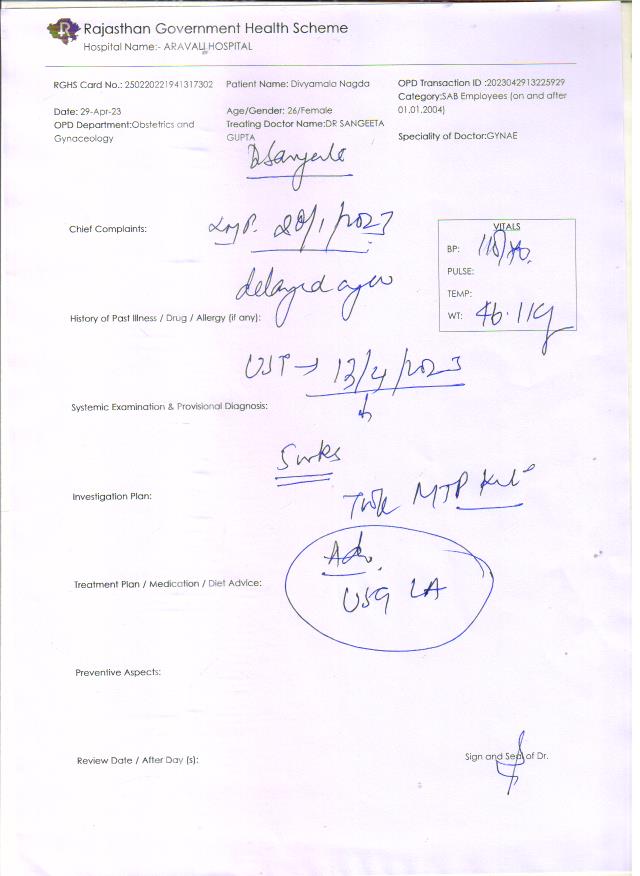 Rajasthan Government Health Scheme
Hospital Name:- ARAVALI HOSPITAL
RGHS Card No.: 250220221941317302 Patient Name: Divyamala Nagda OPD Transaction ID :2023042913225929
Category:SAB Employees (on and after 01.01.2004)
Date: 29-Apr-23 Age/Gender: 26/Female
OPD Department:Obstetrics and Gynaceology Treating Doctor Name:DR SANGEETA GUPTA Speciality of Doctor:GYNAE
Chief Complaints: LMP. 28/1/2023
delayed
VITALS
BP: 118/70
PULSE:
TEMP:
WT: 46.11
History of Past Illness / Drug / Allergy (if any):
13/4/2023
Systemic Examination & Provisional Diagnosis:
5wks
Investigation Plan:
MTP Kit
Treatment Plan / Medication / Diet Advice:
Adv.
USG LA
Preventive Aspects:
Review Date / After Day (s):
Sign and Seal of Dr.